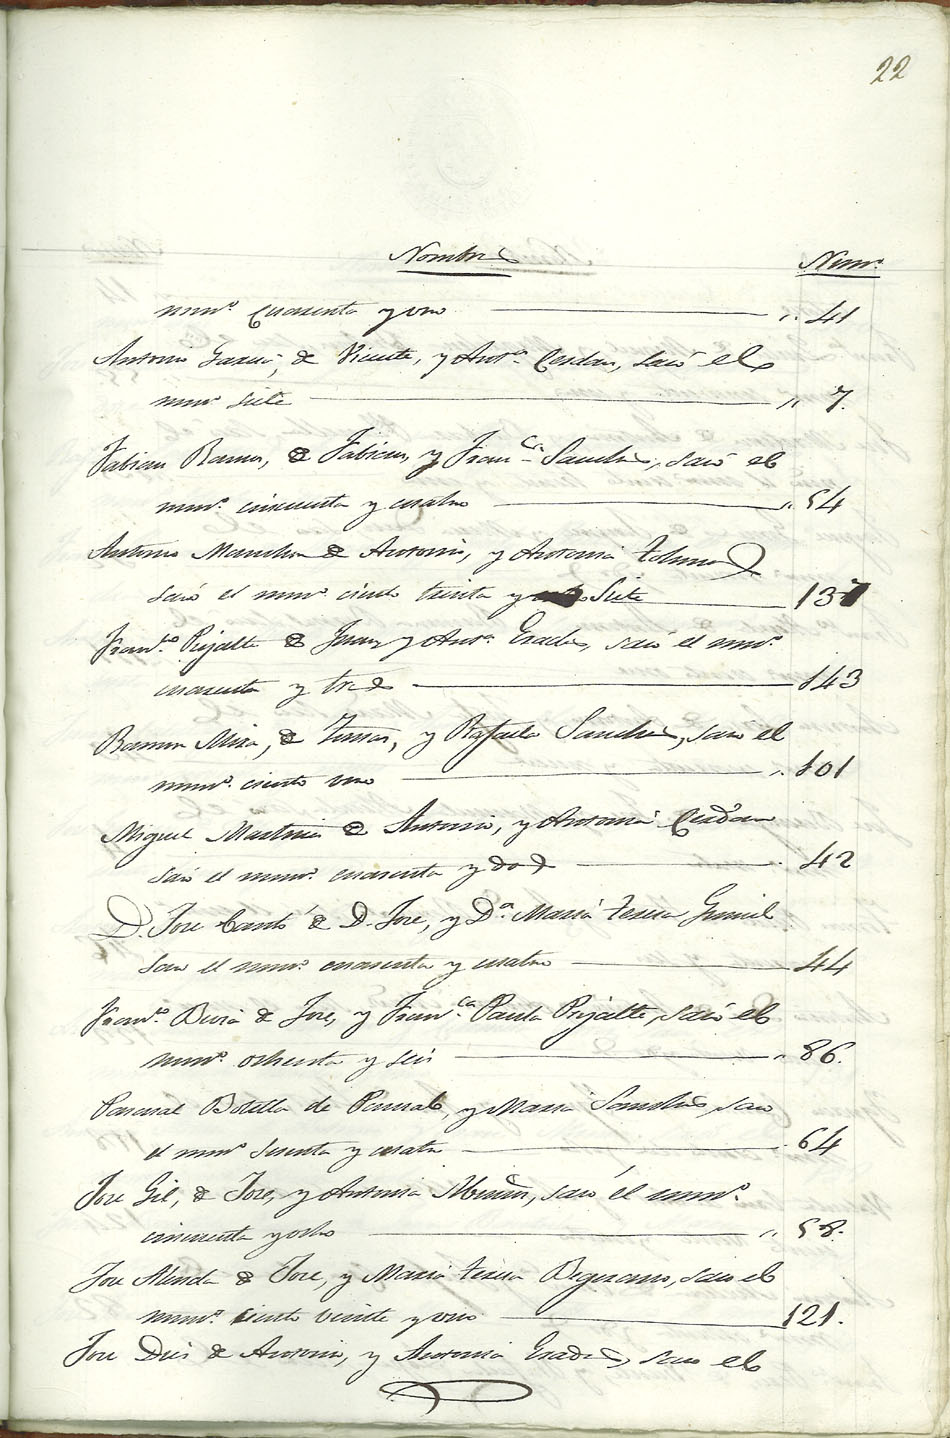 22
Nombres Numº.
numº. Cuarenta y uno ,, 41
Antonio Garcia, de Vicente, y Antª. Cerdan, sacó el
numº siete ,, 7.
Fabian Ramon, de Fabian, y Franca. Sanches, sacó el
numº. cincuenta y cuatro ,, 54
Antonio Manchon de Antonio, y Antonia
sacó el numº. ciento treinta y Siete 137
Franco. Pujalte de Juan y Antª. Grades, sacó el numº.
cuarenta y tres 143
Ramon Mira, de Tomas, y Rafaela Sanches, sacó el
numº. ciento uno ,, 101
Miguel Martinez de Antonio, y Antonia Cerdan
sacó el numº. cuarenta y dos 42
D. Jose Cantó de D. Jose, y Dª. Maria teresa
saco el numº. cuarenta y cuatro 44
Franco. de Jose, y Franca. Paula Pujalte, sacó el
numº. ochenta y seis ,, 86.
Pascual Botella de Pascual, y Maria Sanches, saco
el numº sesenta y cuatro 64
Jose Gil, de Jose, y Antonia sacó el numº.
cincuenta y ocho ,, 58.
Jose Alenda de Jose, y Maria teresa saco el
numº. ciento veinte y uno 121.
Jose de Antonio, y Antonia Grades, saco el